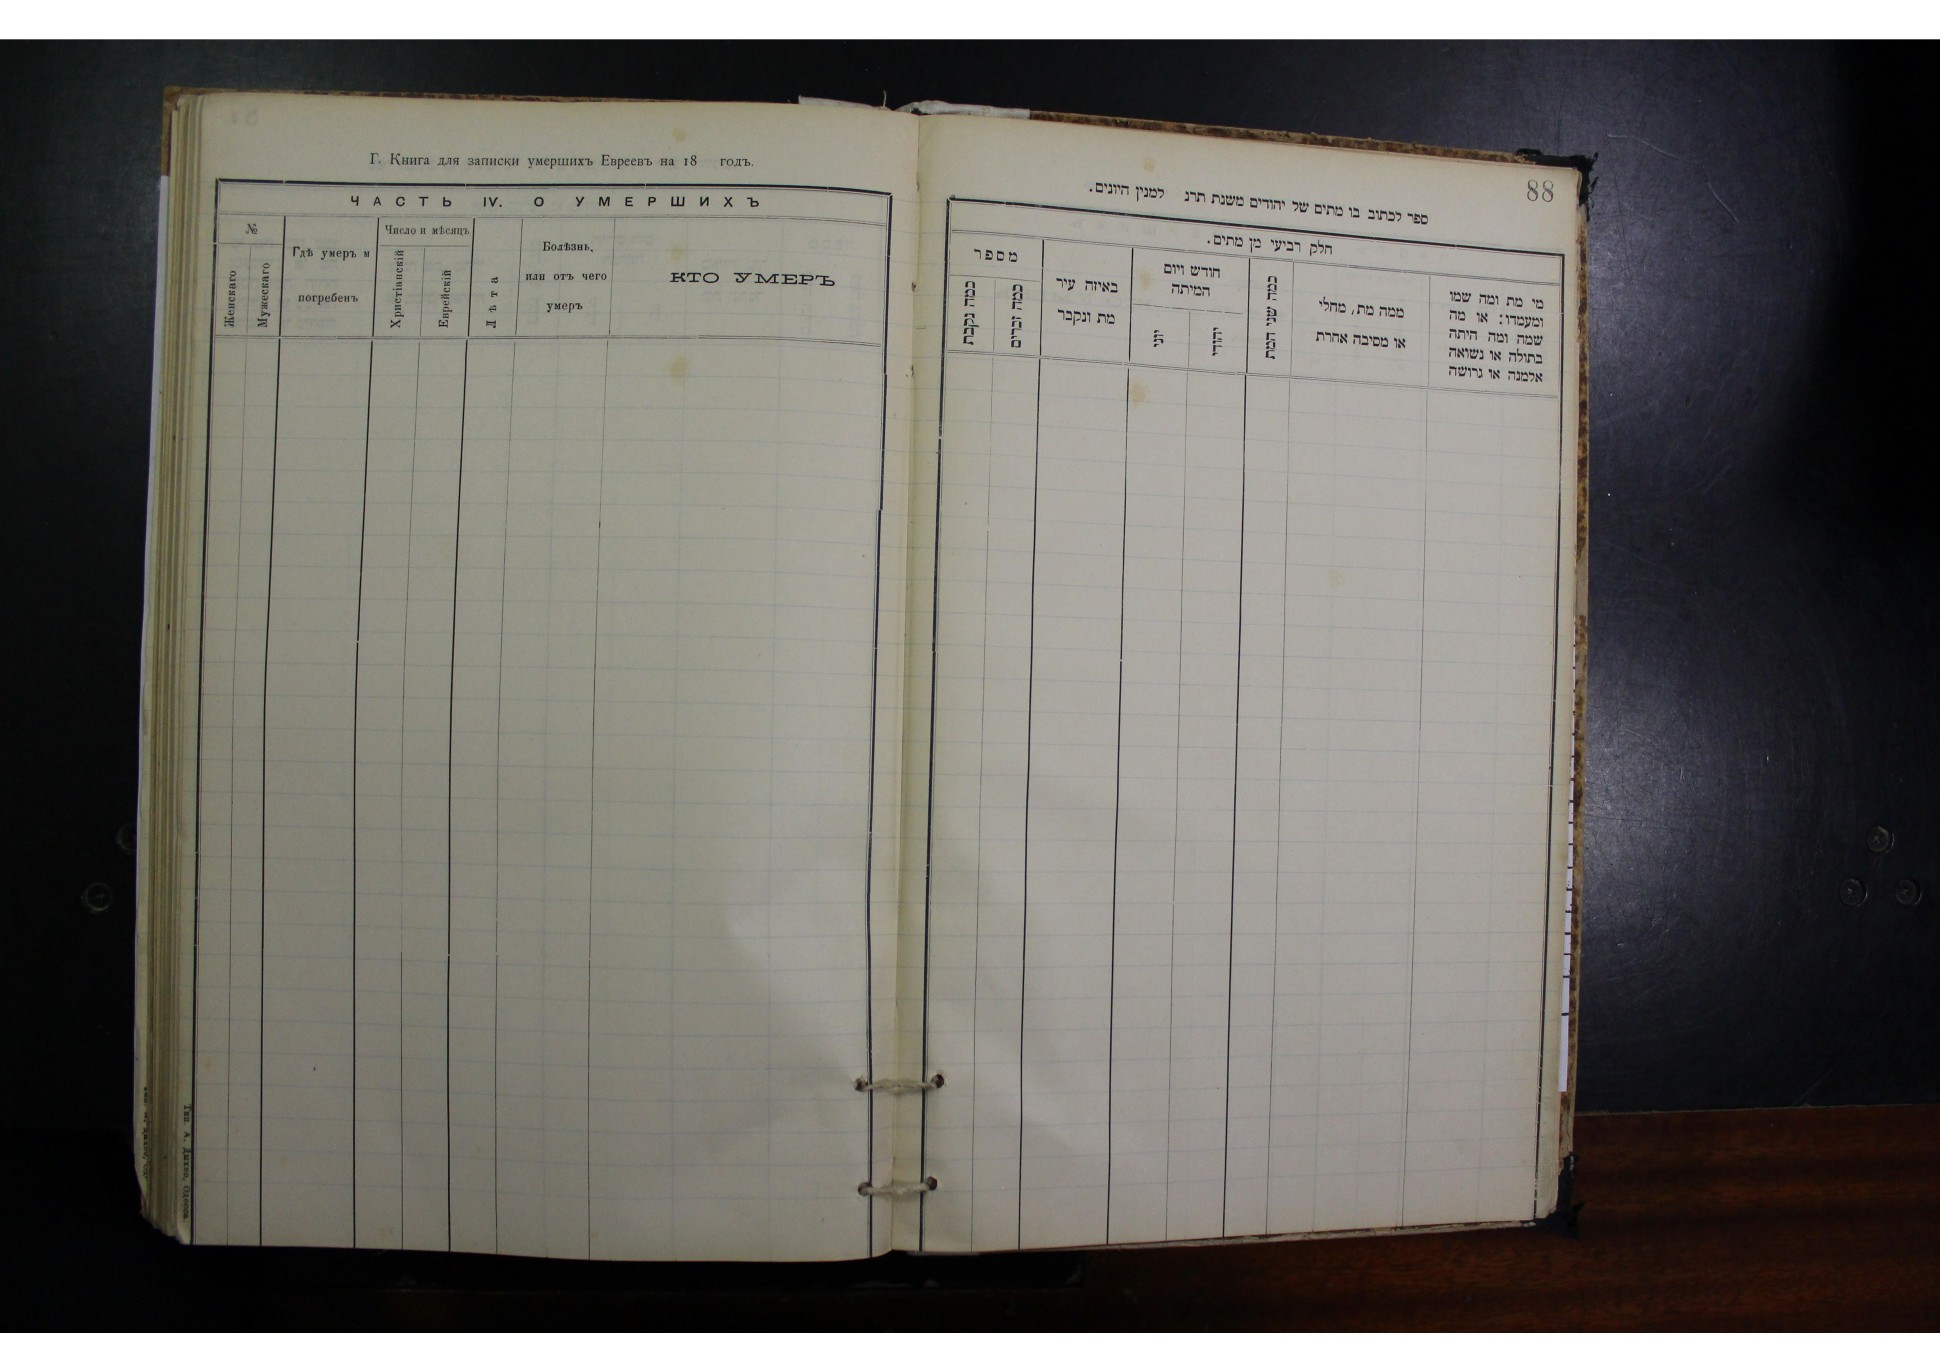 Г. Книга для записки умершихъ Евреевъ на 18 годъ.
ЧАСТЬ IV. О УМЕРШИХЪ
№
Женскаго
Мужескаго
Гдѣ умеръ и
погребенъ
Число и мѣсяцъ
Христіанскій
Еврейскій
Лѣта
Болѣзнь,
или отъ чего
умеръ
КТО УМЕРЪ
Тип. А. Одесса
88
ספר לכתוב בו מתים של יהודים משנת תרנ למנין היונים.
חלק רביעי מן מתים.
מספר
כמה נקבות
כמה זכרים
באיזה עיר
מת ונקבר
חודש ויום
המיתה
יוני
יהודי
כמה שני המת
ממה מת, מחלי
או מסיבה אחרת
מי מת ומה שמו
ומעמדו: או מה
שמה ומה היתה
בתולה או נשואה
אלמנה או גרושה